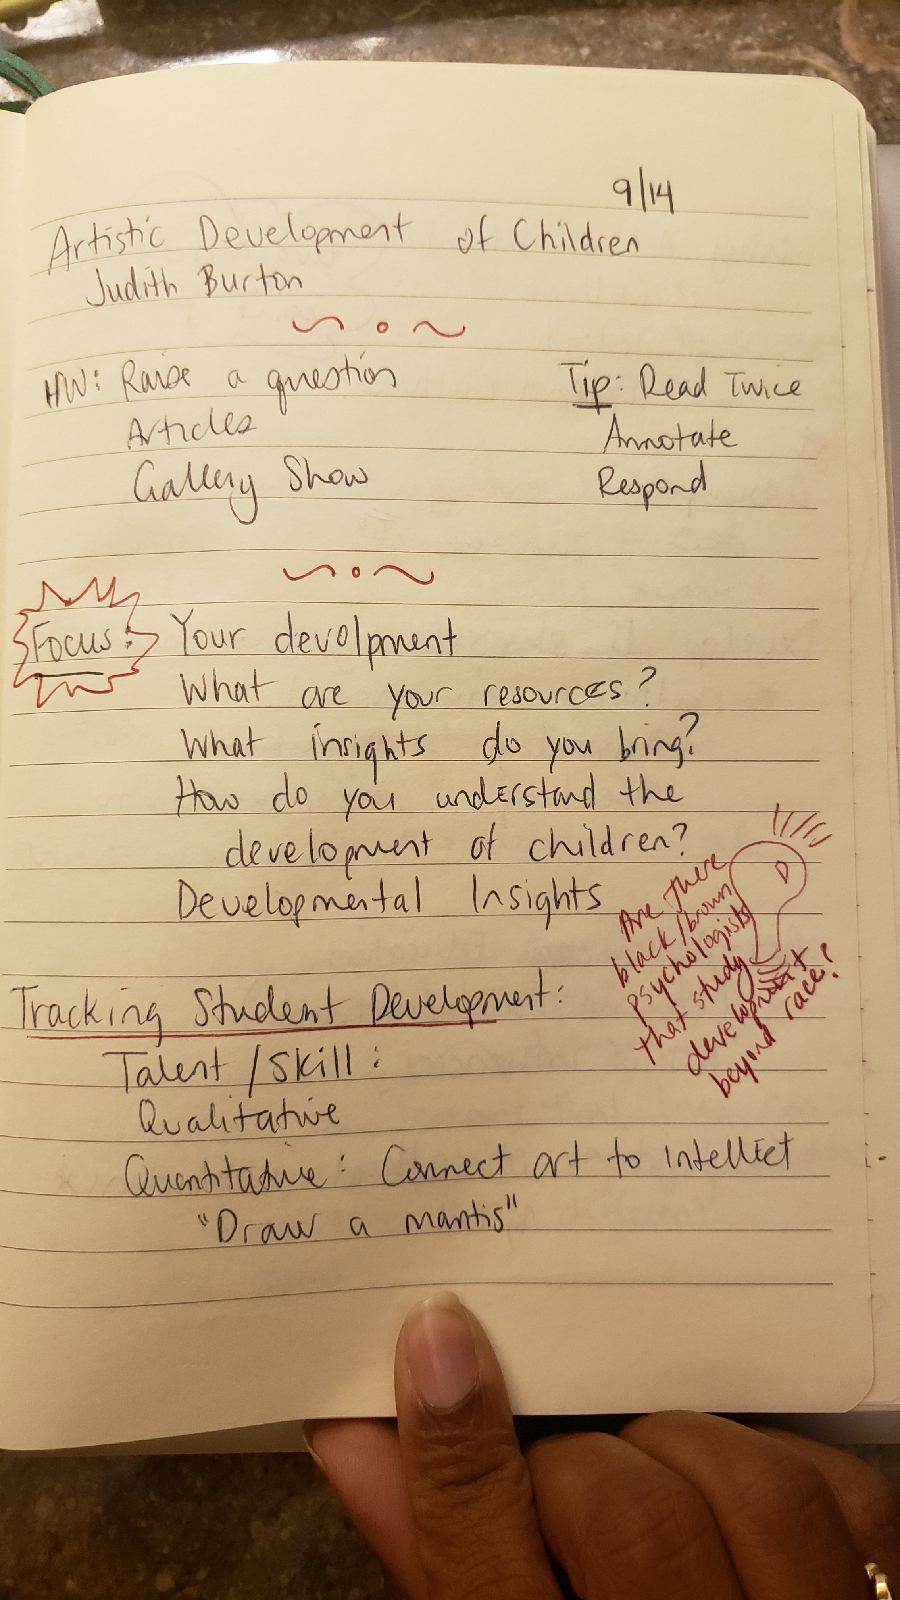 9/14
Artistic Development of Children
Judith Burton
HW: Raise a question
Articles
Gallery Show
Tip: Read Twice
Annotate
Respond
Focus: Your devolpment
What are your resources?
What insights do you bring?
How do you understand the
development of children?
Developmental Insights
Are there
black/brown
psychologists
that study
development
beyond race?
Tracking Student Development:
Talent/Skill:
Qualitative
Quantitative: Connect art to Intellect
"Draw a mantis"